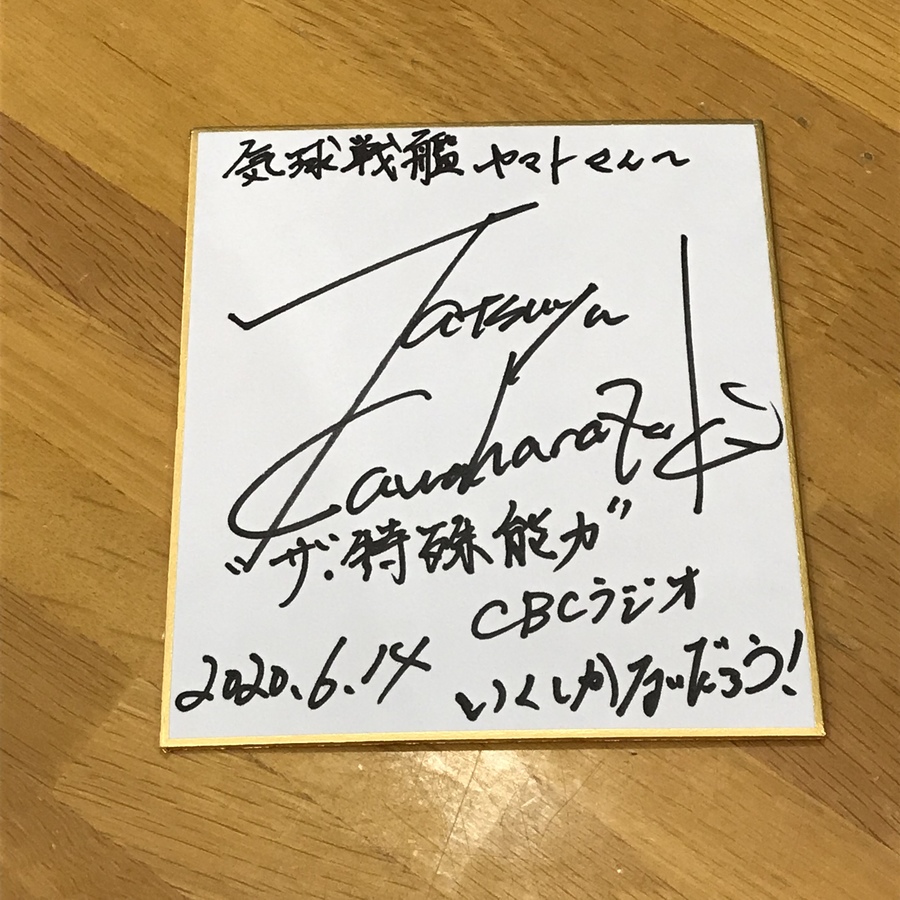 気球戦艦ヤマトさんへ
Tatsuya
Kawaharazaki
"ザ・特殊能力"
CBCラジオ
2020.6.14 いくしかないだろう!